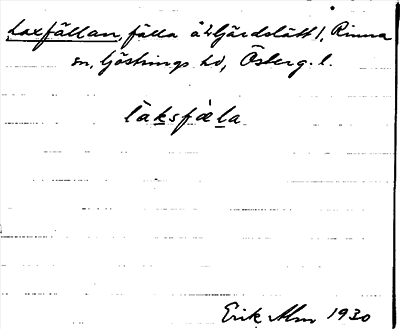 Laxfällan, fälla å Ljärdslätt/, Rinna
sn, Göstrings hd, Österg. l.
làksfæ̀la
Erik Alm 1930